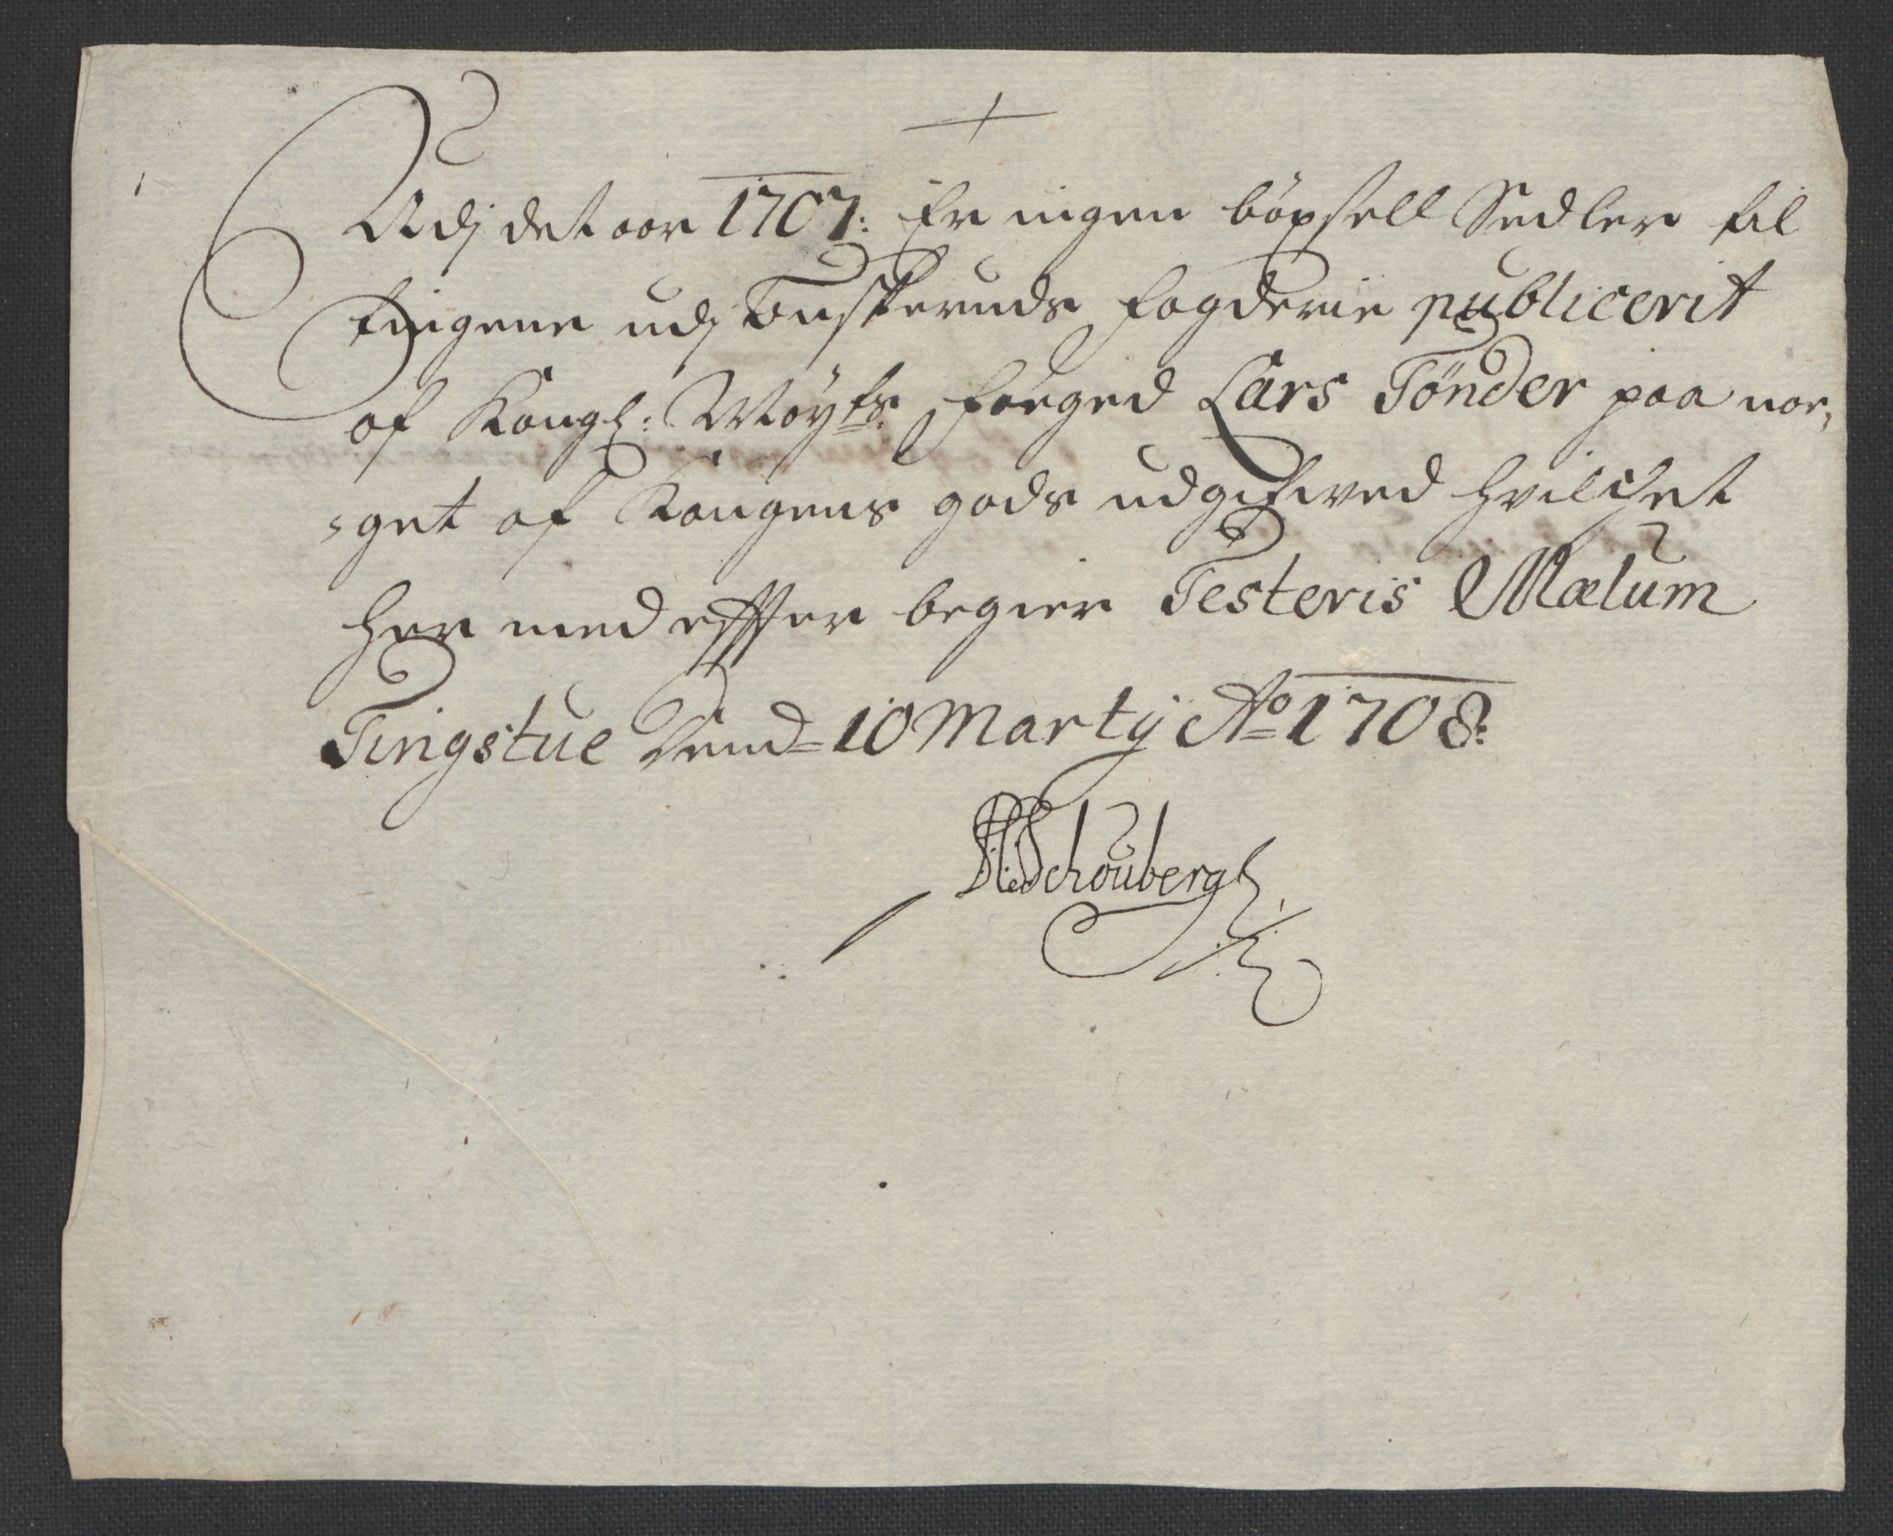 Udj det aar 1707: Er ingen böxsell Sedler til
tingene udj Buskeruds fogderie publicerit
af Kongl: Mayts: foeged Lars Tønder paa nor,
,get af Kongens gods udgifwed hvilchet
her med effter begier Testeris Mælum
Tingstue dend 10 Martij Ao 1708:
HSchouberg